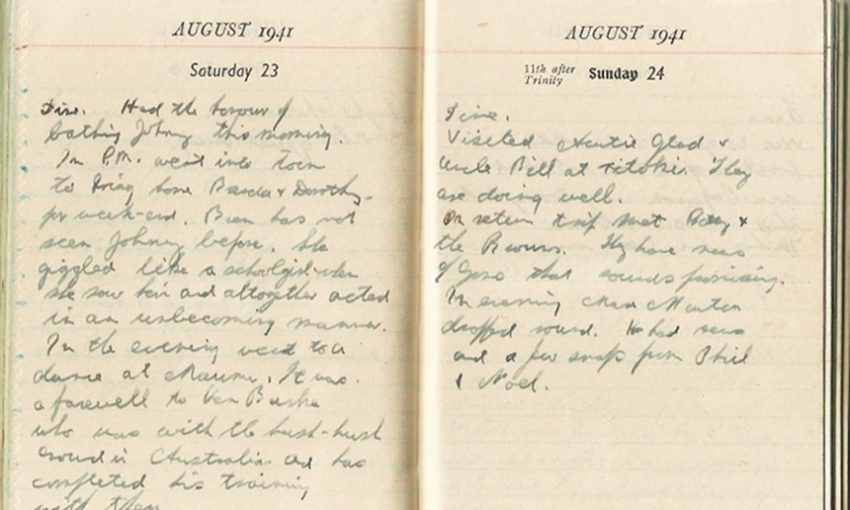 AUGUST 1941
Saturday 23
Fine. Had the honour of
bathing Johnny this morning.
In P.M. went into town
to bring home Brenda & Dorothy
for week-end. Bren has not
seen Johnny before. She
giggled like a schoolgirl when
she saw him and altogether acted
in an unbecoming manner.
In the evening went to a
dance at Maunu. It was
a farewell to Ven Burke
who was with the hush-hush
crowd in Australia and has
completed his training
with them
AUGUST 1941
11th after
Trinity
Sunday 24
Fine.
Visited Auntie Glad &
Uncle Bill at Titoki. They
are doing well.
On return trip met Betty &
the Browns. They have news
of Goro that sounds promising.
In evening Chas Morton
dropped round. He had news
and a few snaps from Phil
& Noel.